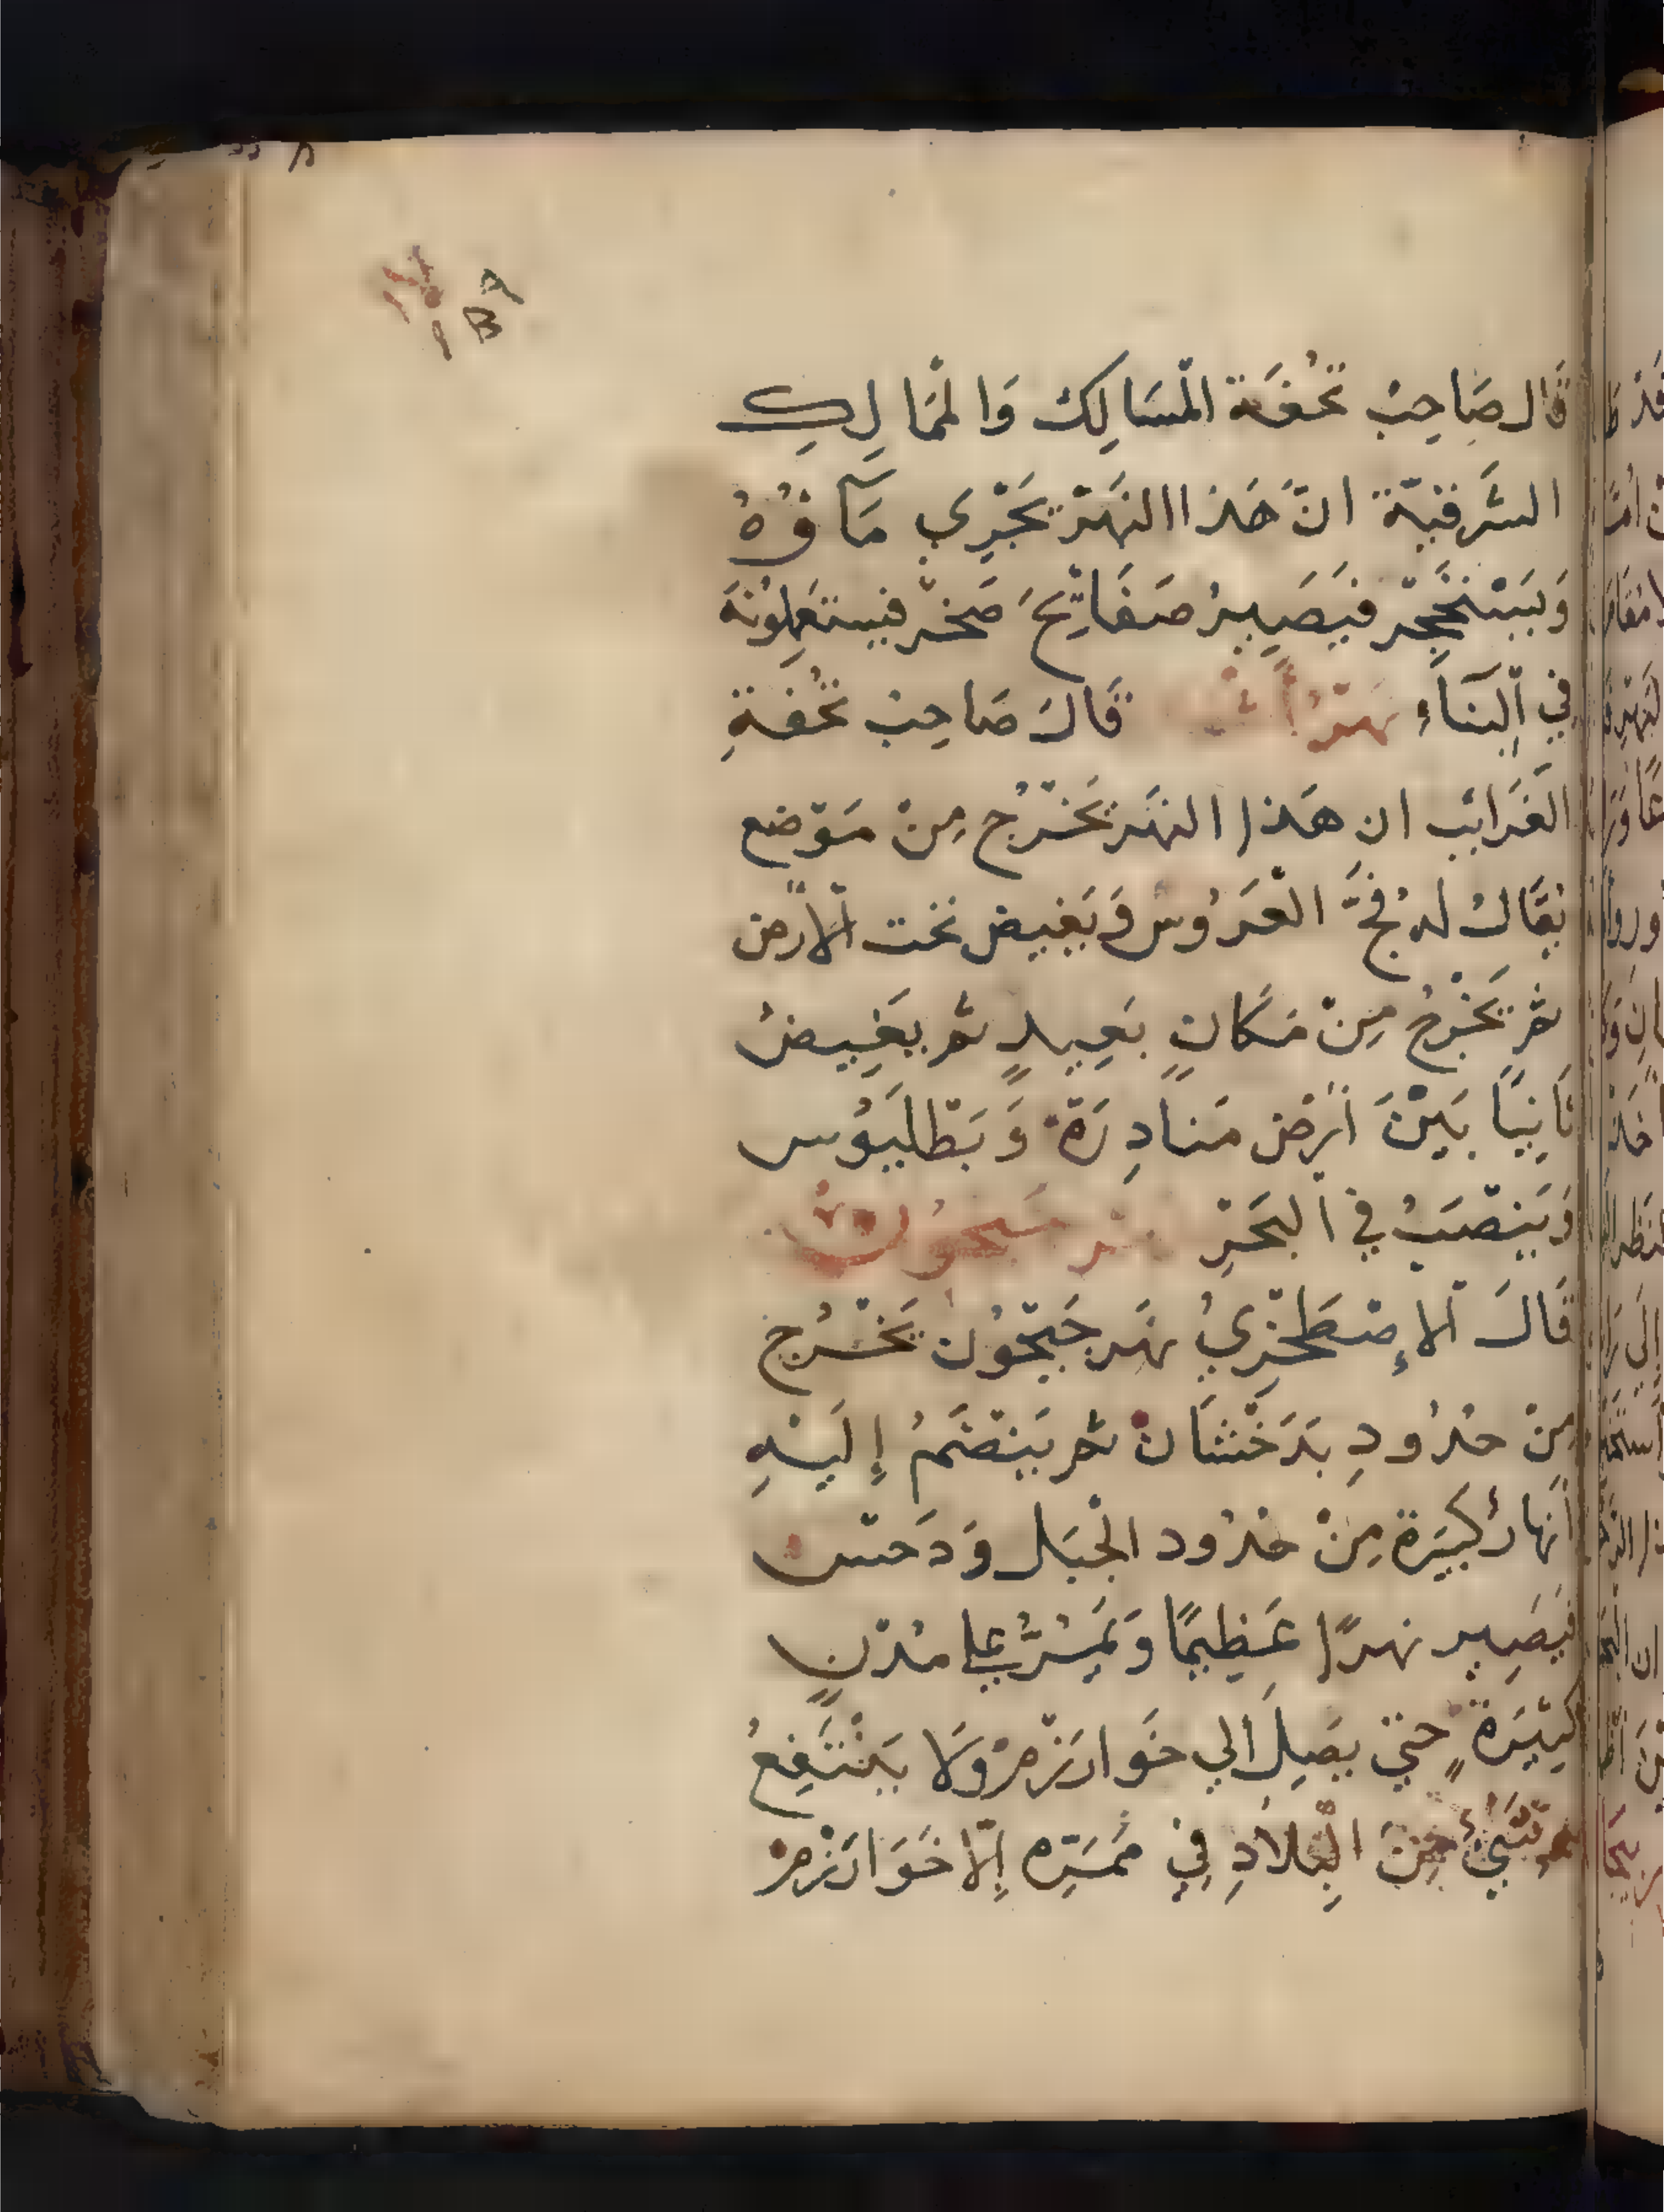 قَال صَاحِبُ تُحْفَة الْمسَالِكْ وَالْمَمَالِكِ
الشَّرقيّة انَّ هَذا النهَرْ يَجْرِي مَآؤُهُ
وَيَسْتَحْجِر فيَصِيرُ صَفَايحَ صَخر فيستعملُونَهَ
فِي الْبَنَاءِ نهَر قَالَ صَاحِبُ تُحْفَةِ
الغَرَائب ان هَذا النهَر يَخْرُج مِنْ مَوْضع
يُقَالُ لهُ فجَّ الْعَرُوسْ وَيَغيض تحت الْارْض
ثم يَخْرُجُ مِنْ مَكَانٍ بَعِيدٍ ثم يَغِيضُ
ثَانِيًا بَيْنَ ارْض منادِرَة وَبَطْلَيوُس
وَيَنْصَبُ في الْبَحَرِ نهر
قَالَ الْإصْطَخْرِيُ نهَر جَيْحُون يَخْرُج
مِنْ حُدُودِ بَدَخْشَانْ ثم يَنْضَمُ إِلَيْهِ
أنهارُ كبيَرة مِنْ حُدُود الْجَبَل وَدَحس
فيَصِير نهرًا عَظِيمًا وَيَمُرُّ علي مُدُنٍ
كثيَرةٍ حتي يَصِلَ الي خَوارَزْمْ وَلَا يَنْتَفِعُ
شَيْءُ مِنَ الْبِلَادِ فِي مَمَرِّه إِلّا خَوَارَزْمْ